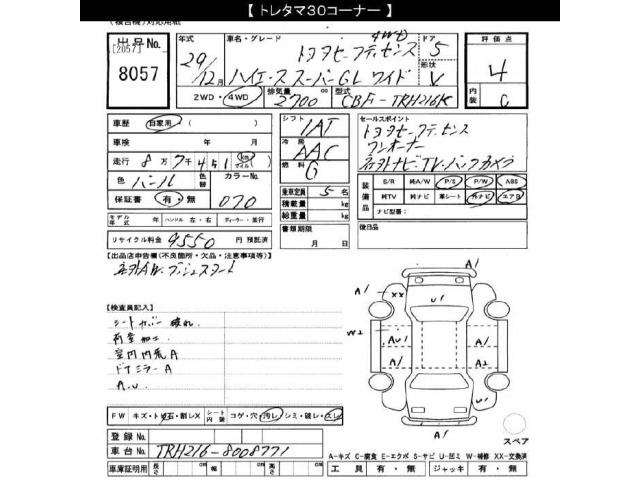 【 トレタマ30コーナー 】
(複合機)対応用紙
出品No.
[2057]
8057
年式
29/12月
車名・グレード
4WD
トヨタセーフティセンス
ハイエース スーパーGL ワイド
ドア
5
形状
V
評価点
4
内装
C
2WD・4WD
排気量
2700 cc
型式
CBF-TRH216K
車歴 自家用・( )
車検 年 月
走行 8万7千451
色 パール 色替
カラーNo.
070
保証書 有・無
モデル年式 年 ハンドル 左・右 ディーラー・並行
リサイクル料金 9550 円 預託済
シフト
IAT
冷房
AAC
燃料
G
乗車定員 5 名
積載量 kg
総重量 kg
書類期限
月 日
セールスポイント
トヨタセーフティセンス
ワンオーナー
社外ナビ・TV・バックカメラ
装備品
S/R 純A/W P/S P/W ABS
純TV 純ナビ 革シート 外ナビ エアB
ナビ型番:
後日品
【出品店申告欄(不良箇所・欠品・注意事項等)】
社外AW・プッシュスタート
【検査員記入】
シートカバー破れ
荷室加工
室内内荒A
ドアミラーA
A.U
A1
A1
XX
U1
W2
AU1
A1
A1
A2
U1
A1
A1
スペア
FW キズ・ト・石・割レX
シート内装 コゲ・穴・汚レ・シミ・破レ・スレ
登録No.
車台No. TRH216-8008771
A-キズ C-腐食 E-エクボ S-サビ U-凹ミ W-補修 XX-交換済
車庫証明用 長さ cm 幅 cm 高さ cm
工具 有・無 ジャッキ 有・無